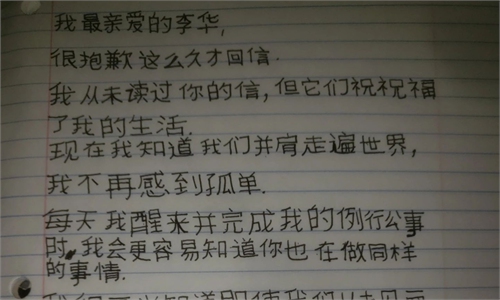 我最亲爱的李华,
很抱歉这么久才回信.
我从未读过你的信,但它们祝祝福
了我的生活.
现在我知道我们并肩走遍世界,
我不再感到孤单.
每天我醒来并完成我的例行公事
时,我会更容易知道你也在做同样
的事情.